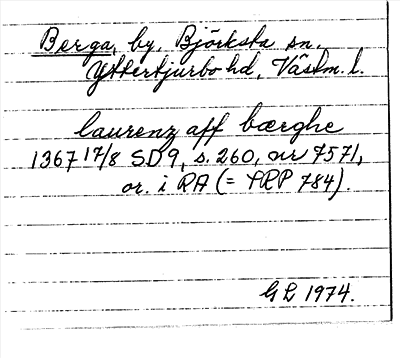 Berga, by, Björksta sn.
Yttertjurbo hd, Västm. l.
laurenz aff bærghe
1367 17/8 SD 9, s. 260, nr 7571,
or. i RA (= SRP 784).
G L 1974.